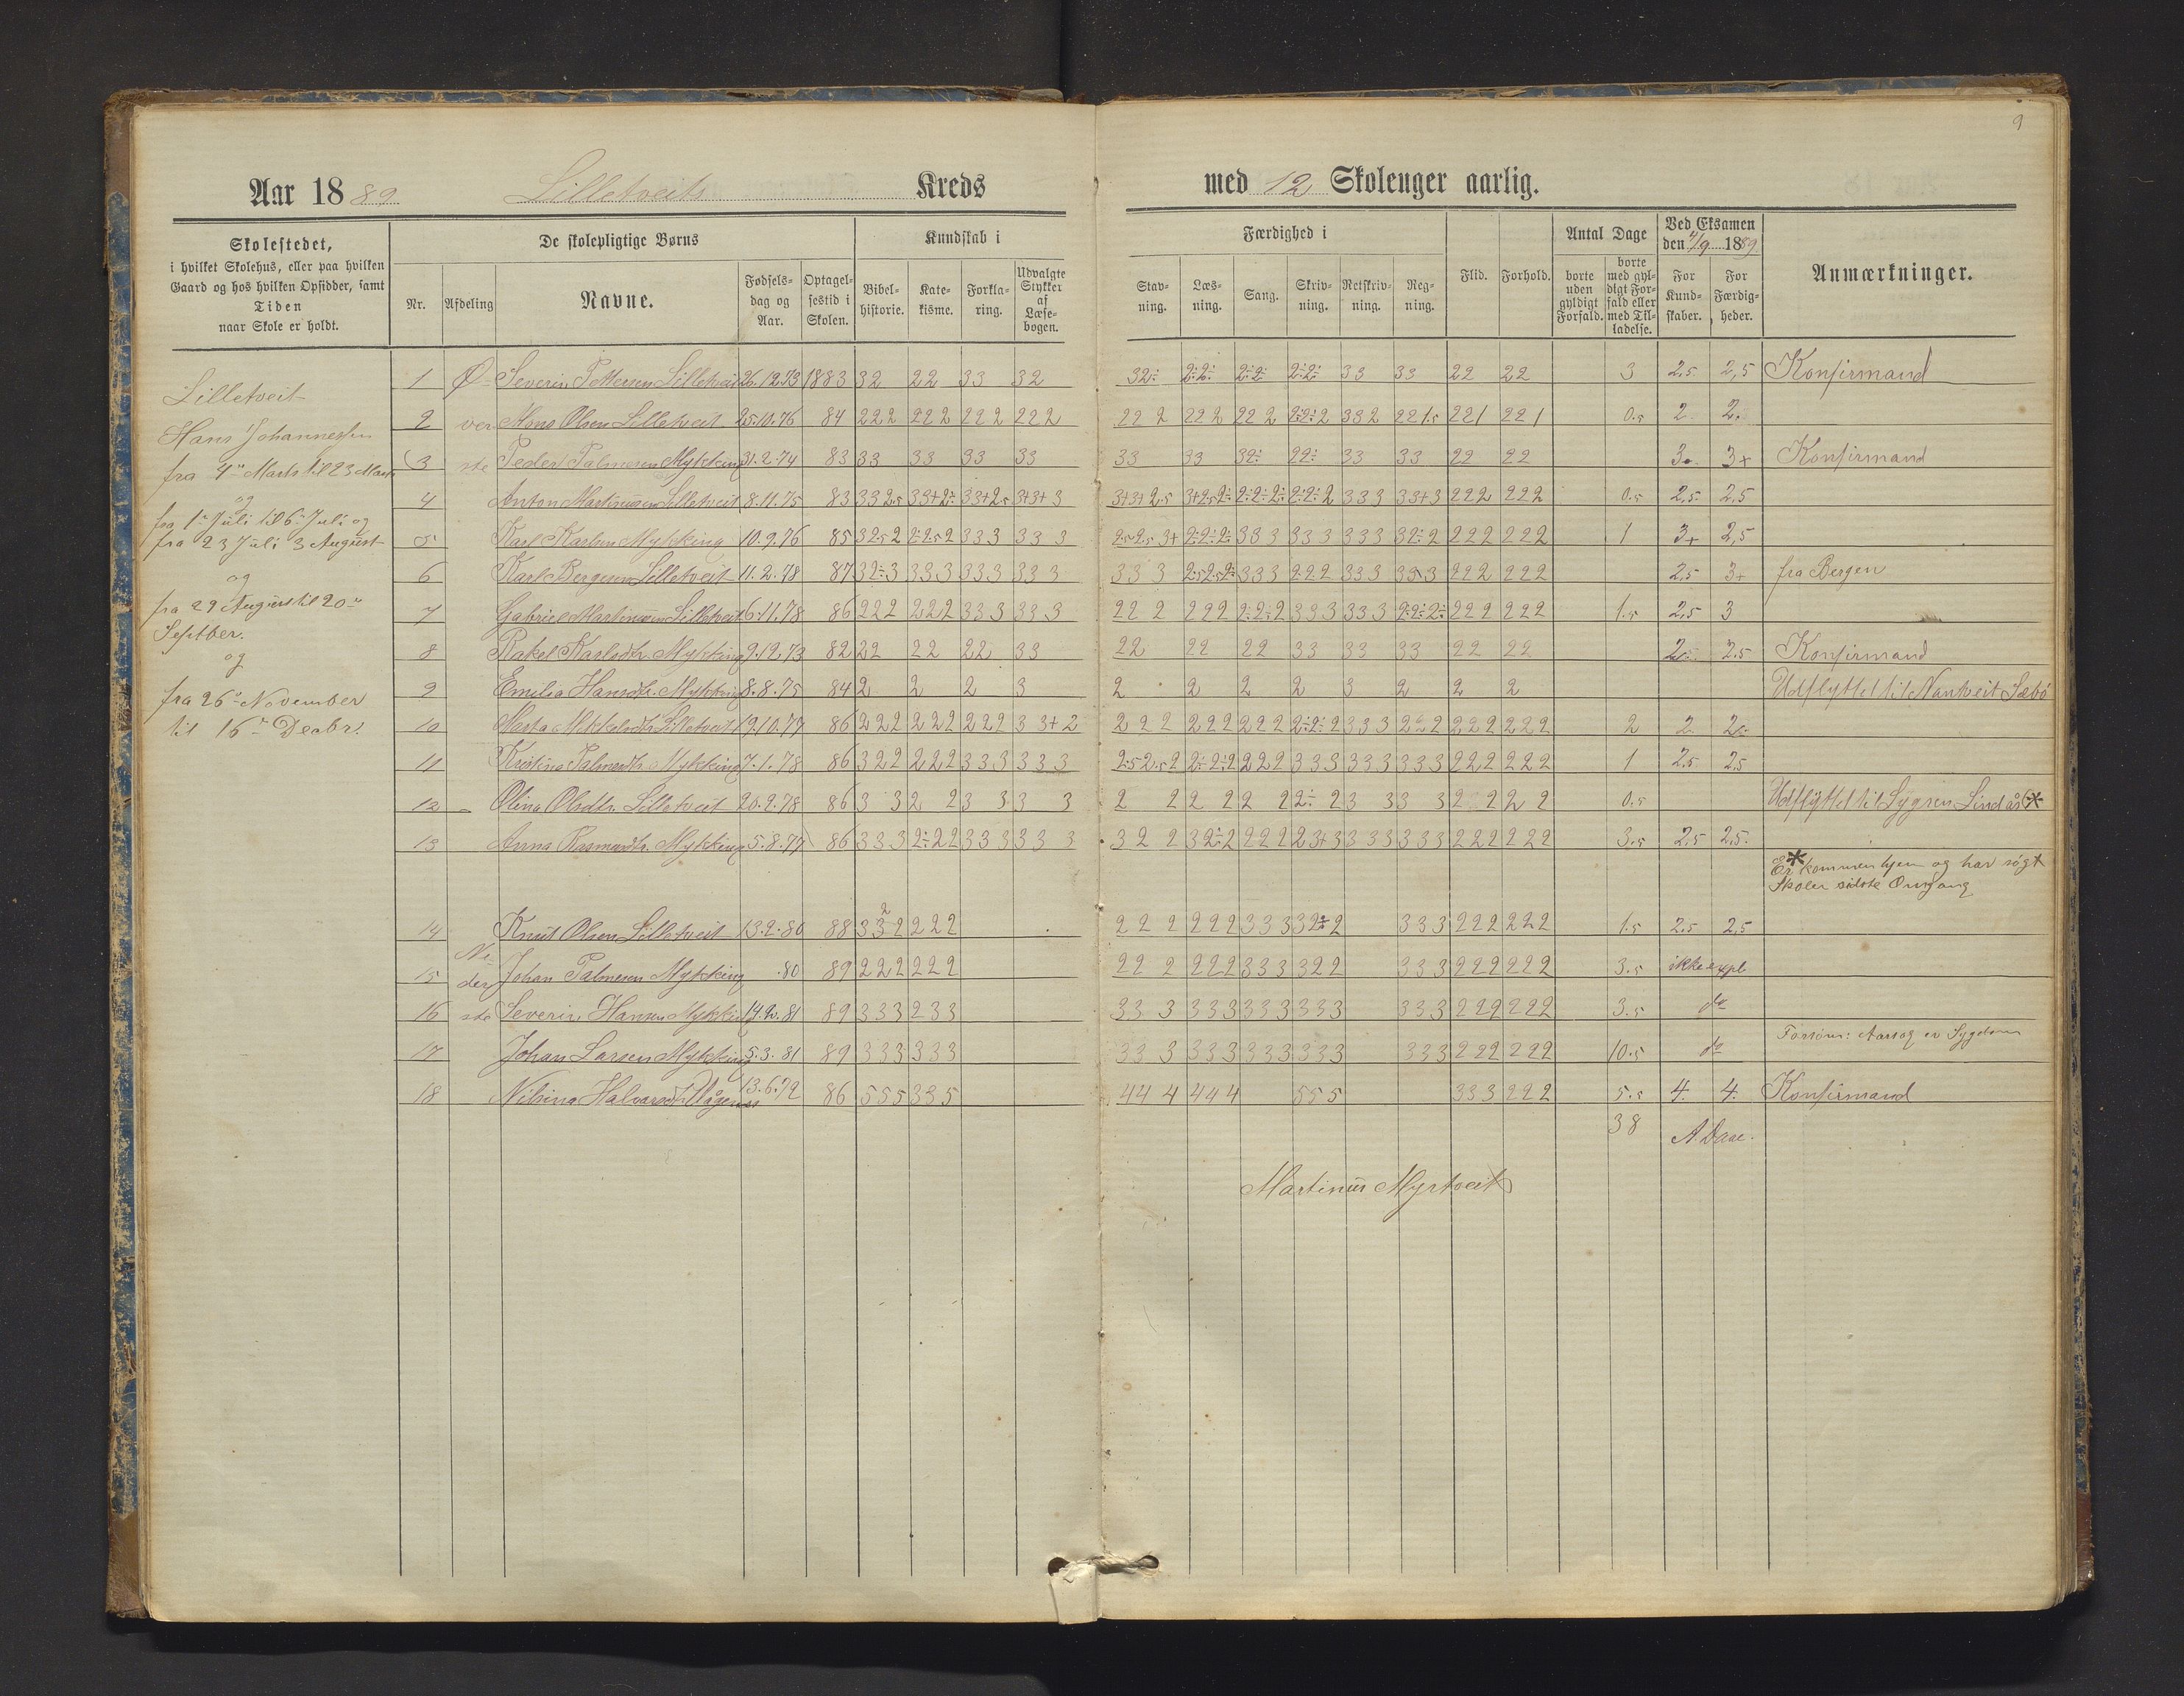 9
Aar 1889 Lilletveits Kreds med 12 Skoleuger aarlig.
Skolestedet,
i hvilket Skolehus, eller paa hvilken
Gaard og hos hvilken Opsidder, samt
Tiden
naar Skole er holdt.
De skolepligtige Børns
Nr. Afdeling Navne. Fødselsdag og Aar. Optagelsestid i Skolen.
Kundskab i
Bibelhistorie. Katekisme. Forklaring. Udvalgte Stykker af Læsebogen.
Færdighed i
Stavning. Læsning. Sang. Skrivning. Retskrivning. Regning.
Flid. Forhold.
Antal Dage
borte uden gyldigt Forfald. borte med gyldigt Forfald eller med Tilladelse.
Ved Eksamen den 4/9 1889
For Kundskaber. For Færdigheder.
Anmærkninger.
Lilletveit
Hans Johannessen
fra 4de Marts til 23 Marts
og
fra 1ste Juli til 6te Juli og
fra 23 Juli 3 August
og
fra 29 August til 20de
Septber.
og
fra 26de November
til 16de Decbr.
1 Ø- Severin Pettersen Lilletveit 26.12.73 1883 32 22 33 32 32÷ 2÷2÷ 2÷2÷ 2÷2÷ 33 33 22 22 3 2,5 2,5 Konfirmand
2 ver Mons Olsen Lilletveit 25.10.76 84 222 222 222 222 22 2 222 22 2 2÷2÷2 332 221.5 221 221 0.5 2 2.
3 ste Peder Palmesen Mykking 31.2.74 83 33 33 33 33 33 33 32÷ 22÷ 33 33 22 22 3. 3+ Konfirmand
4 Anton Martinussen Lilletveit 8.11.75 83 332.5 33+2÷ 33+2.5 3+3+3 3+3+2.5 3+2.52÷ 2÷2÷2÷ 2÷2÷2 333 33+3 222 222 0.5 2,5 2,5
5 Karl Karlsen Mykking 10.9.76 85 32.52 2÷2.52 333 33 3 2.52.53+ 2÷2÷2÷ 333 333 333 32÷2 222 222 1 3+ 2,5
6 Karl Bergesen Lilletveit 11.2.78 87 32÷3 333 333 33 3 33 3 2.52.52÷ 333 222 333 333 222 222 2,5 3+ fra Bergen
7 Gabriel Martinussen Lilletveit 6.11.78 86 222 222 333 33 3 22 2 222 2÷2÷2 333 333 2÷2÷2÷ 222 222 1.5 2,5 3
8 Rakel Karlsdtr. Mykking 9.12.73 82 22 22 22 33 22 22 22 33 33 33 22 22 2÷ 2.5 Konfirmand
9 Emilia Hansdtr. Mykking 8.8.75 84 2 2 2 3 2 2 2 2 3 2 2 2 Udflyttet til Nantveit Sæbö
10 Marta Mikkelsdtr Lilletveit 19.10.77 86 222 222 222 3 3+ 2 2 2 2 222 222 2÷2÷2 333 222 222 222 2 2. 2÷
11 Kristina Palmesdtr. Mykking 7.1.78 86 322 222 333 333 2.52.52 2÷2÷2 222 333 333 333 222 222 1 2,5 2,5
12 Olina Olsdtr. Lilletveit 20.2.78 86 3 3 2 2 3 3 3 3 2 2 2 2 2 2 2÷ 2 3 3 3 3 2 2 2 2 0.5 Udflyttet til Sygnen Lindås *
13 Anna Rasmusdtr. Mykking 5.8.77 86 333 2÷22 333 33 3 3 2 2 32÷2 222 23+3 333 333 222 222 3.5 2,5 2,5.
* Er kommen hjem og har søgt
Skolen sidste Omgang
14 Knut Olsen Lilletveit 13.2.80 88 332 222 2 2 2 222 333 32÷2 333 222 222 1.5 2,5 2,5
15 Ne- der Johan Palmesen Mykking .80 89 222 222 22 2 222 333 322 333 222 222 3.5 ikke expl.
16 ste Severin Hansen Mykking 14.2.81 89 333 233 33 3 333 333 333 333 222 222 3.5 do
17 Johan Larsen Mykking 5.3.81 89 333 333 33 3 333 333 333 333 222 222 10.5 do Forsøm: Aarsag er Sygdom
18 Nilsina Halvorsdtr. Vågenes 13.6.72 86 555 335 44 4 444 555 333 222 5.5 4. 4. Konfirmand
38 A Daae.
Martinus Myrtveit